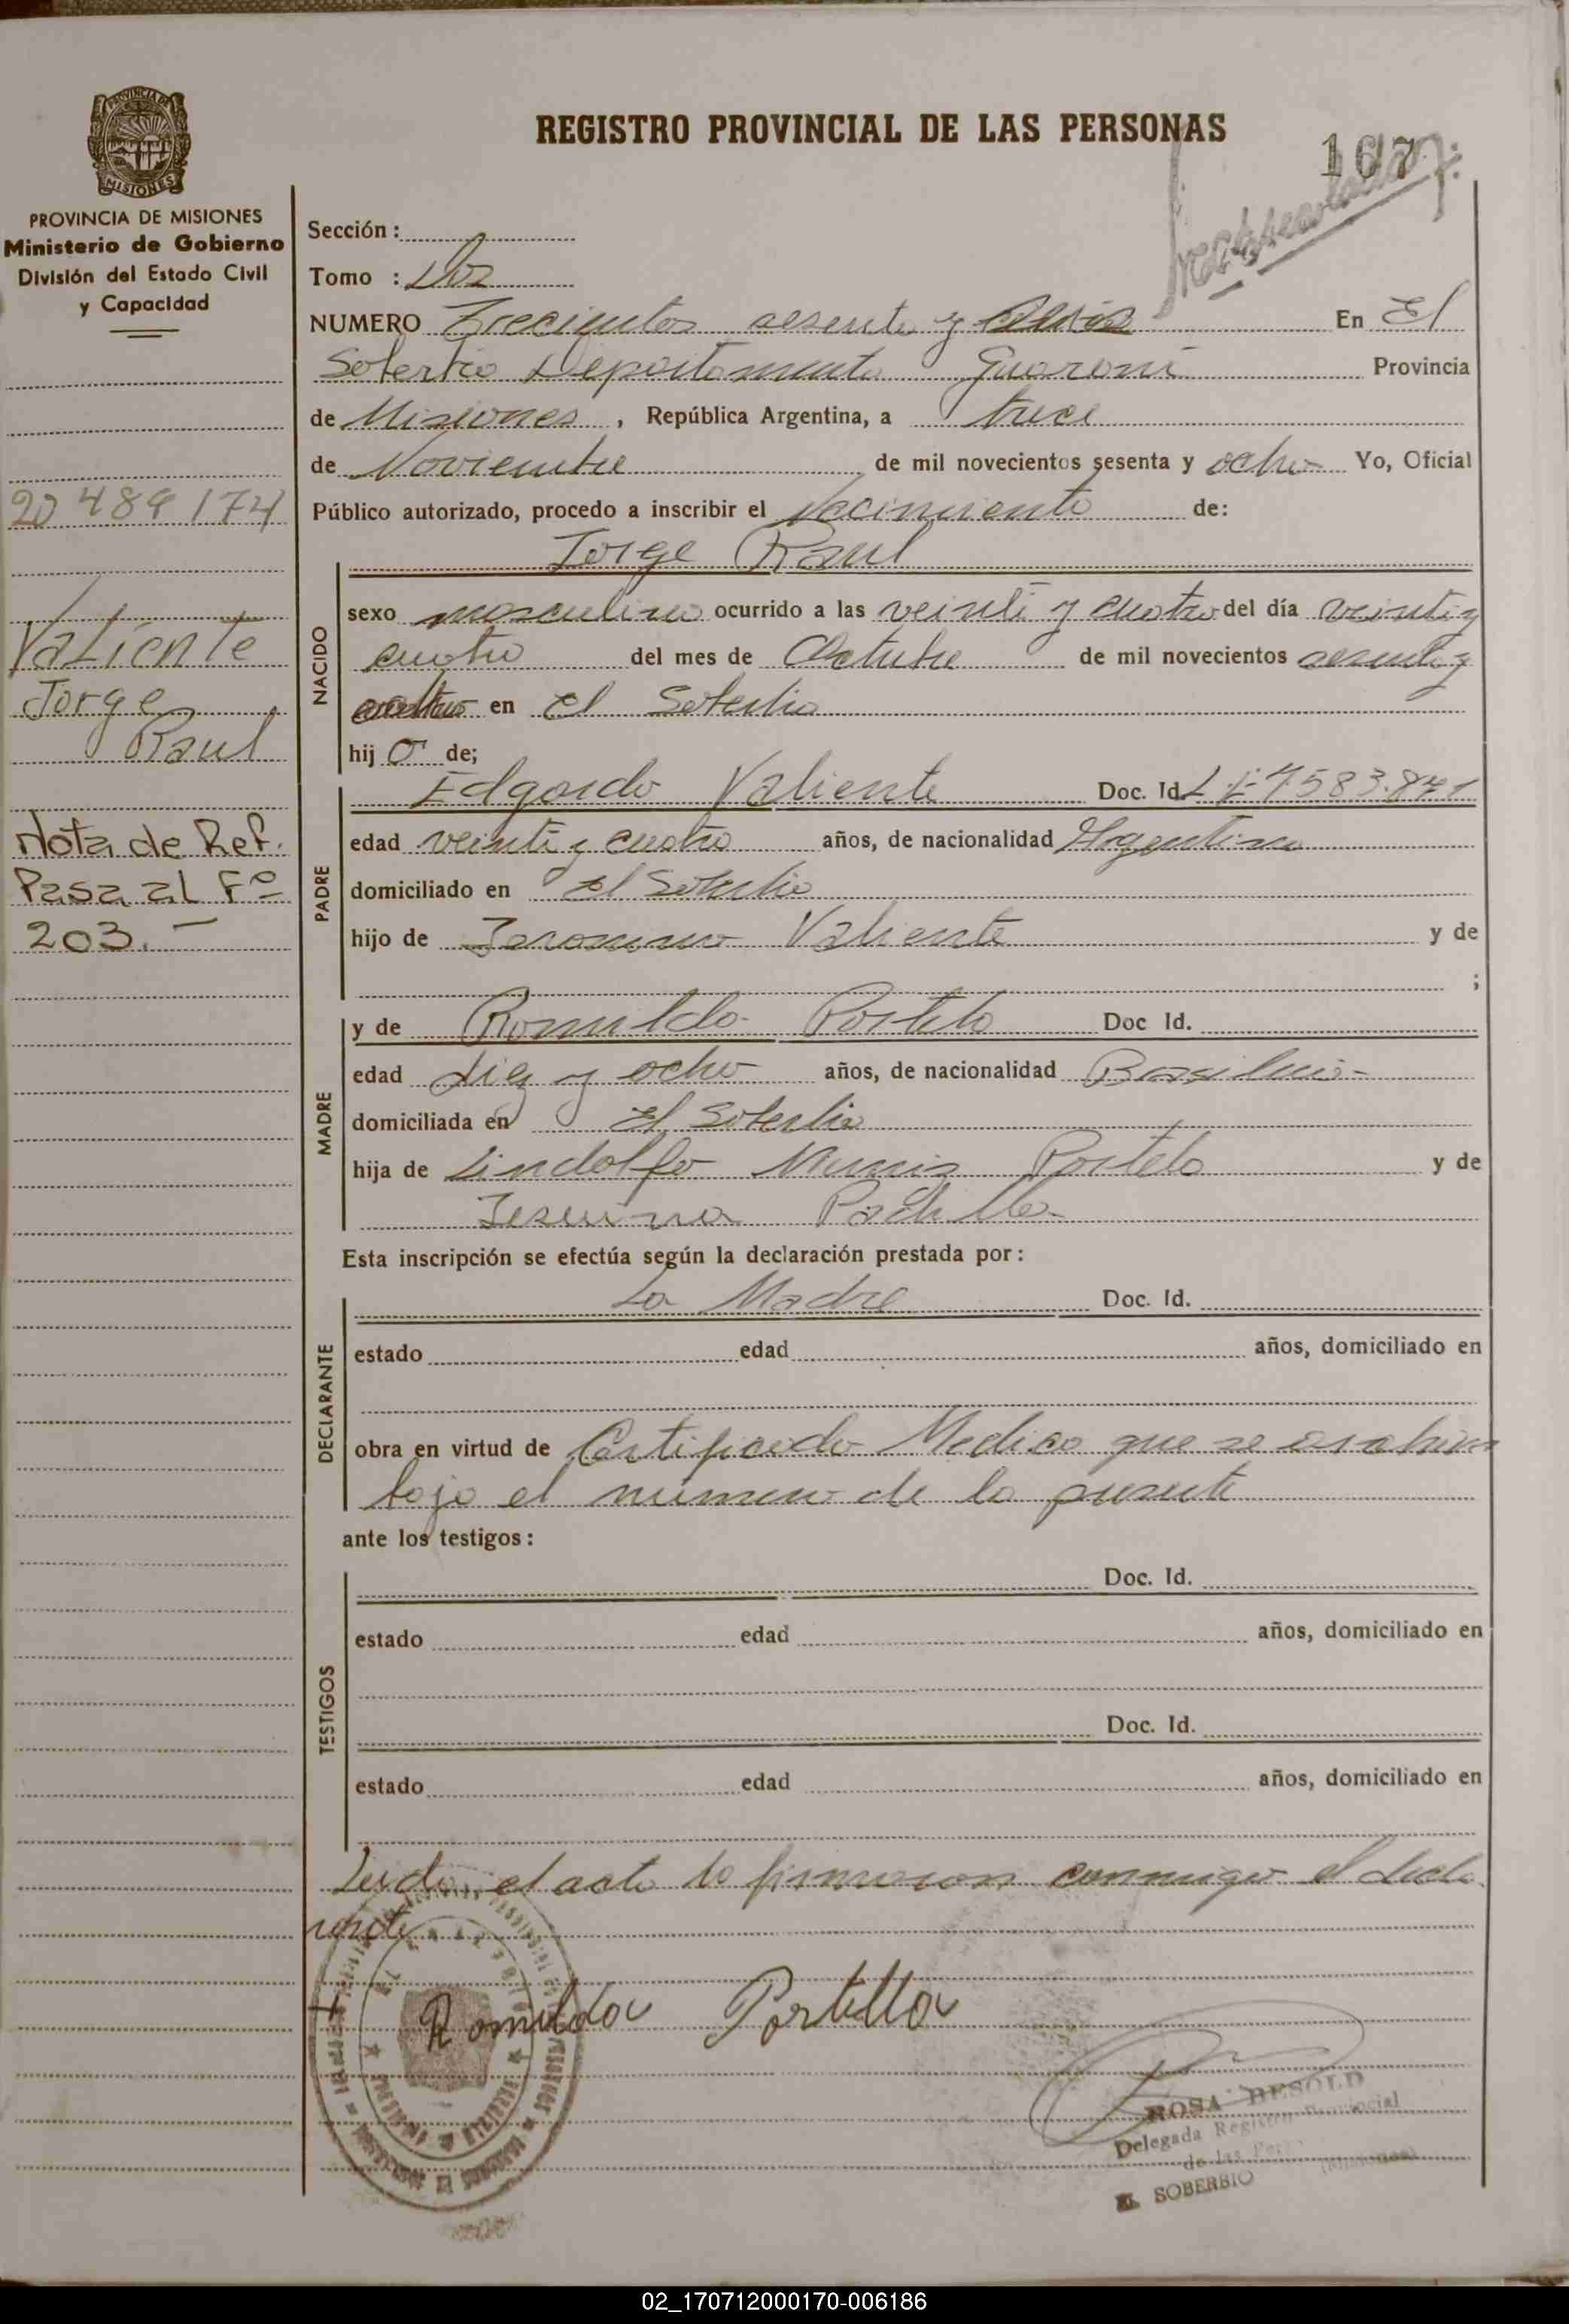 REGISTRO PROVINCIAL DE LAS PERSONAS
167
PROVINCIA DE MISIONES
MISIONES
PROVINCIA DE MISIONES
Ministerio de Gobierno
División del Estado Civil
y Capacidad
20 489 174
Valiente
Jorge
Raul
Nota de Ref.
Pasa al Fº
203.-
Sección :
Tomo : Dos
NUMERO Trecientos sesenta y En El
Soberbio Departamento Guarani Provincia
de Misiones , República Argentina, a trece
de Noviembre de mil novecientos sesenta y ocho Yo, Oficial
Público autorizado, procedo a inscribir el Nacimiento de:
Jorge Raul
NACIDO
sexo masculino ocurrido a las veinti y cuatro del día veinti y
cuatro del mes de Octubre de mil novecientos sesenta y
en El Soberbio
hij o de;
PADRE
Edgardo Valiente Doc. Id. L E 7583.871
edad veinti y cuatro años, de nacionalidad Argentina
domiciliado en El Soberbio
hijo de Jeronimo Valiente y de
;
MADRE
y de Romilda Portela Doc Id.
edad diez y ocho años, de nacionalidad Brasilera
domiciliada en El Soberbio
hija de Lindolfo Muniz Portela y de
y de
Esta inscripción se efectúa según la declaración prestada por :
DECLARANTE
La Madre Doc. Id.
estado edad años, domiciliado en
obra en virtud de Certificado Medico que se archiva
bajo el numero de la presente
ante los testigos :
TESTIGOS
Doc. Id.
estado edad años, domiciliado en
Doc. Id.
estado edad años, domiciliado en
Leida el acta la firmaron conmigo el decla
rante
Romilda Portella
ROSA BESOLD
Delegada Registro Provincial
de las
EL SOBERBIO (Misiones)
02_170712000170-006186